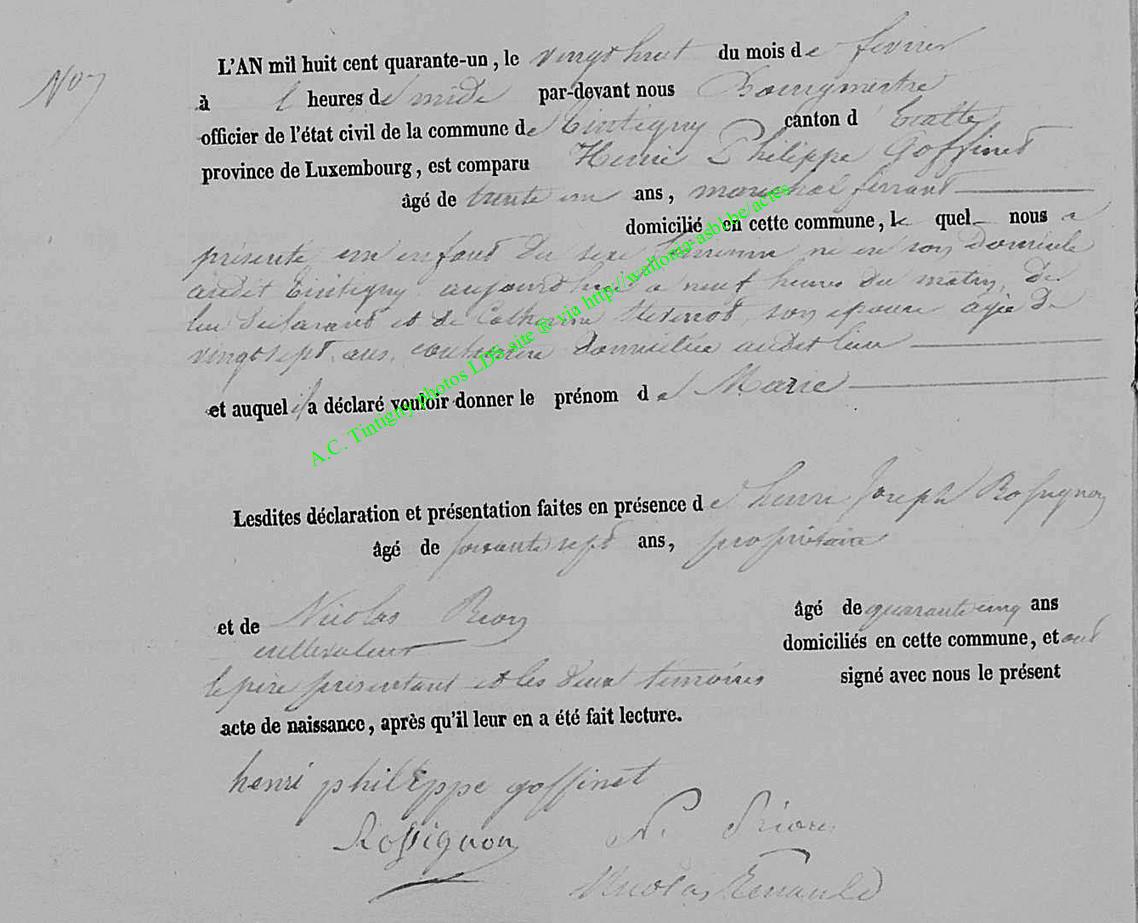 No 7
L'AN mil huit cent quarante-un, le vingt huit du mois de février
à heures de midi par-devant nous Bourgmestre
officier de l'état civil de la commune de Tintigny canton d' Etalle
province de Luxembourg, est comparu Henri Philippe Goffinet
âgé de trente un ans, marechal ferrant
domicilié en cette commune, lequel nous a
présenté un enfant du sexe feminin né en son domicile
audit Tintigny aujourd'hui a neuf heures du matin, de
lui declarant et de Catherine son epouse agée de
vingt sept ans, couturiere domiciliée audit lieu
et auquel il a déclaré vouloir donner le prénom de Marie
Lesdites déclaration et présentation faites en présence de henri Joseph Rossignon
âgé de soixante sept ans, propriétaire
et de Nicolas Rion âgé de quarante cinq ans
cultivateur domiciliés en cette commune, et ont
le père présentant et les deux temoins signé avec nous le présent
acte de naissance, après qu'il leur en a été fait lecture.
henri philippe goffinet
Rossignon N. Rion
Nicolas
A.C. Tintigny photos LDS site ® via http://wallonia-asbl.be/actes